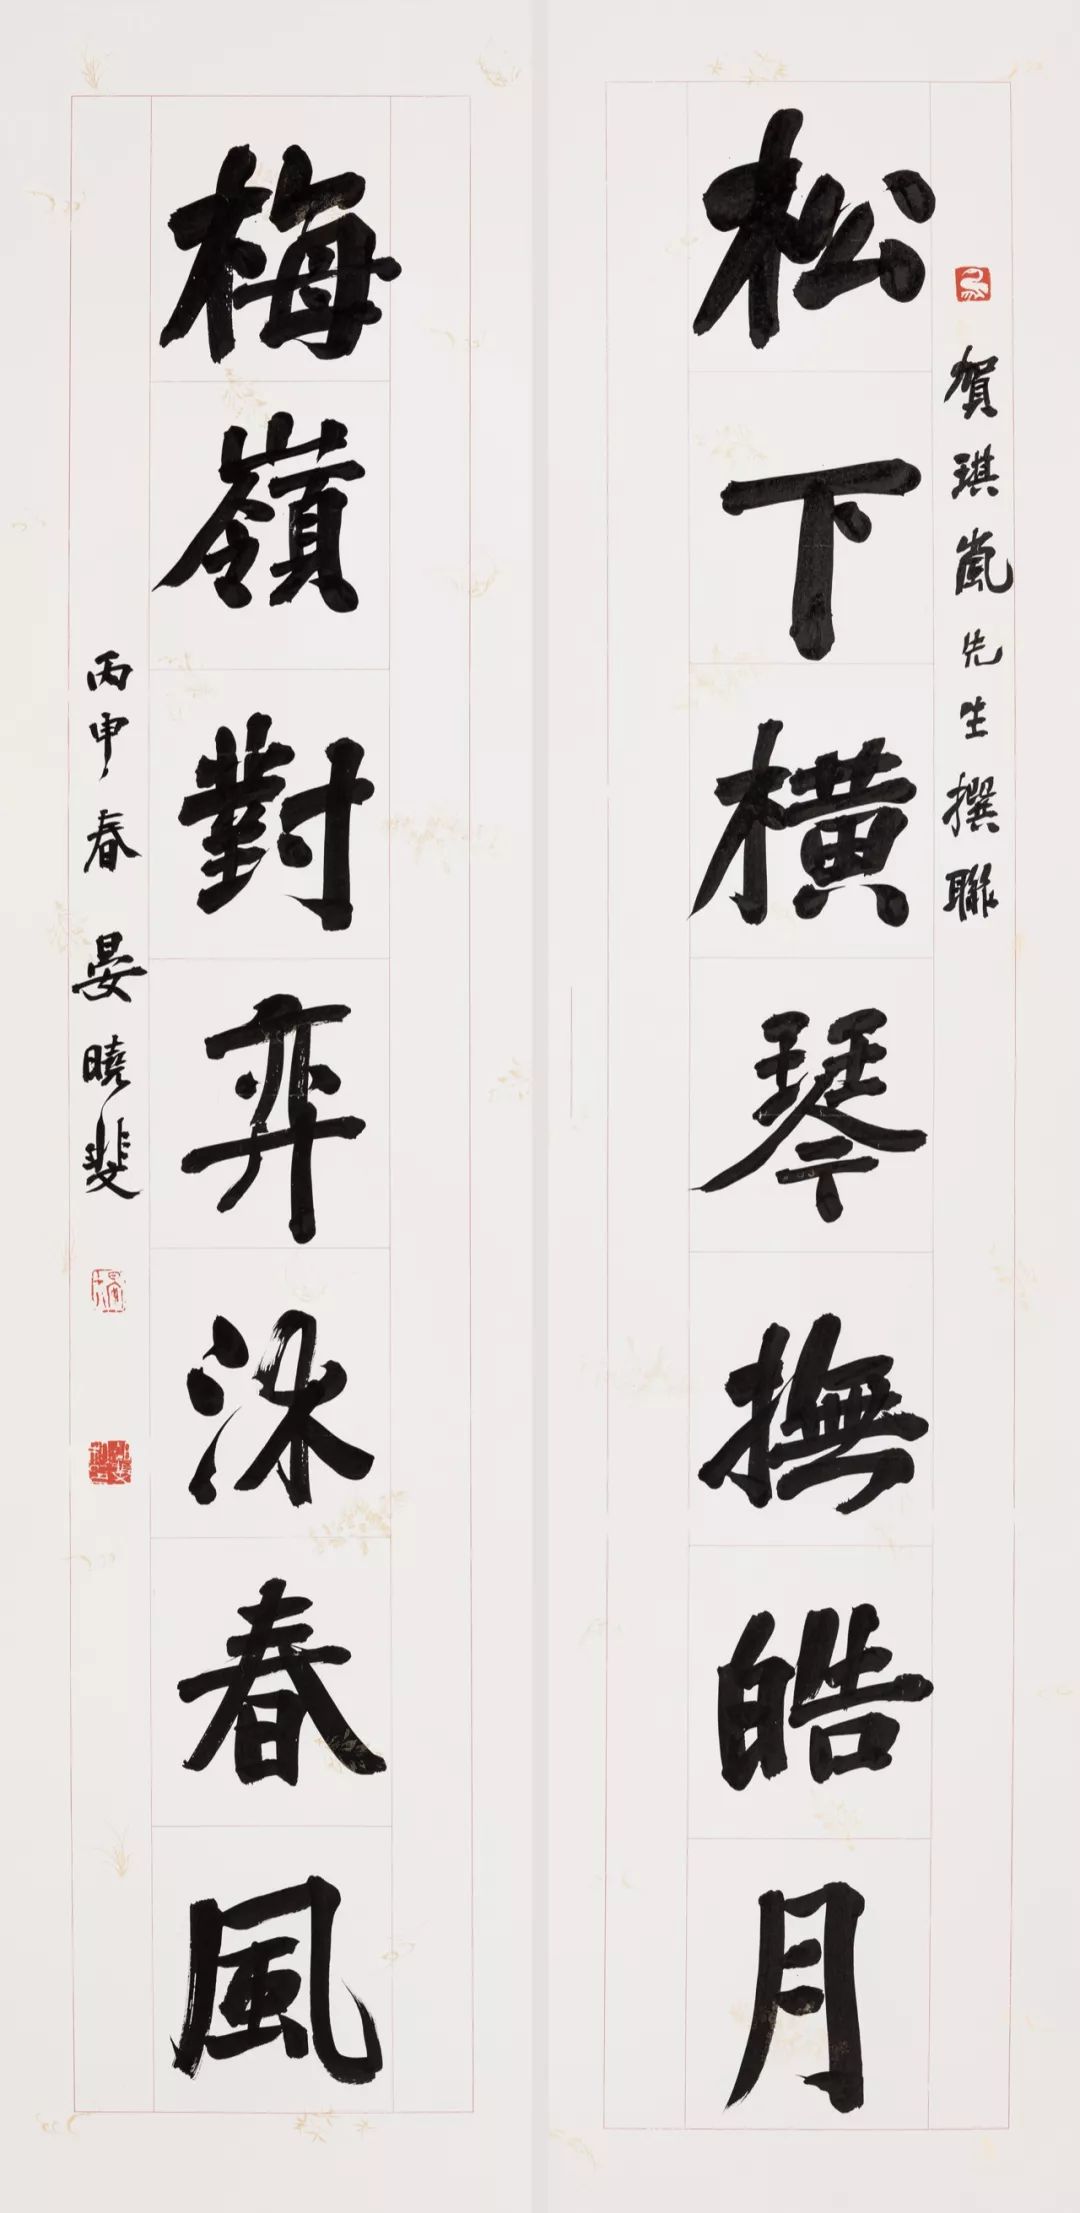 賀琪嵐先生撰聯
松下橫琴撫皓月
梅嶺對弈沐春風
丙申春 晏曉斐